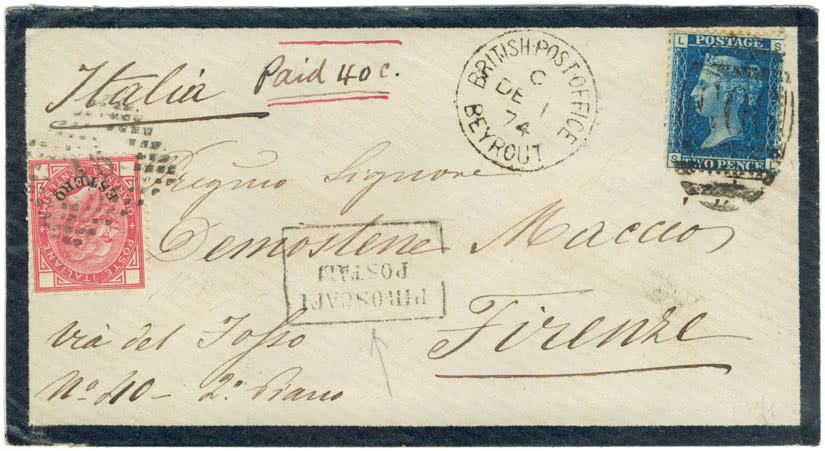 Italia
Paid 40 c.
BRITISH·POST·OFFICE
C
DE 1
74
BEYROUT
L S
POSTAGE
S L
TWO PENCE
ESTERO
POSTE ITALIANE
Pregmo Signore
Demostene Macciò
PIROSCAFI
POSTALI
Firenze
Via del Fosso
No. 40 - 2o. Piano